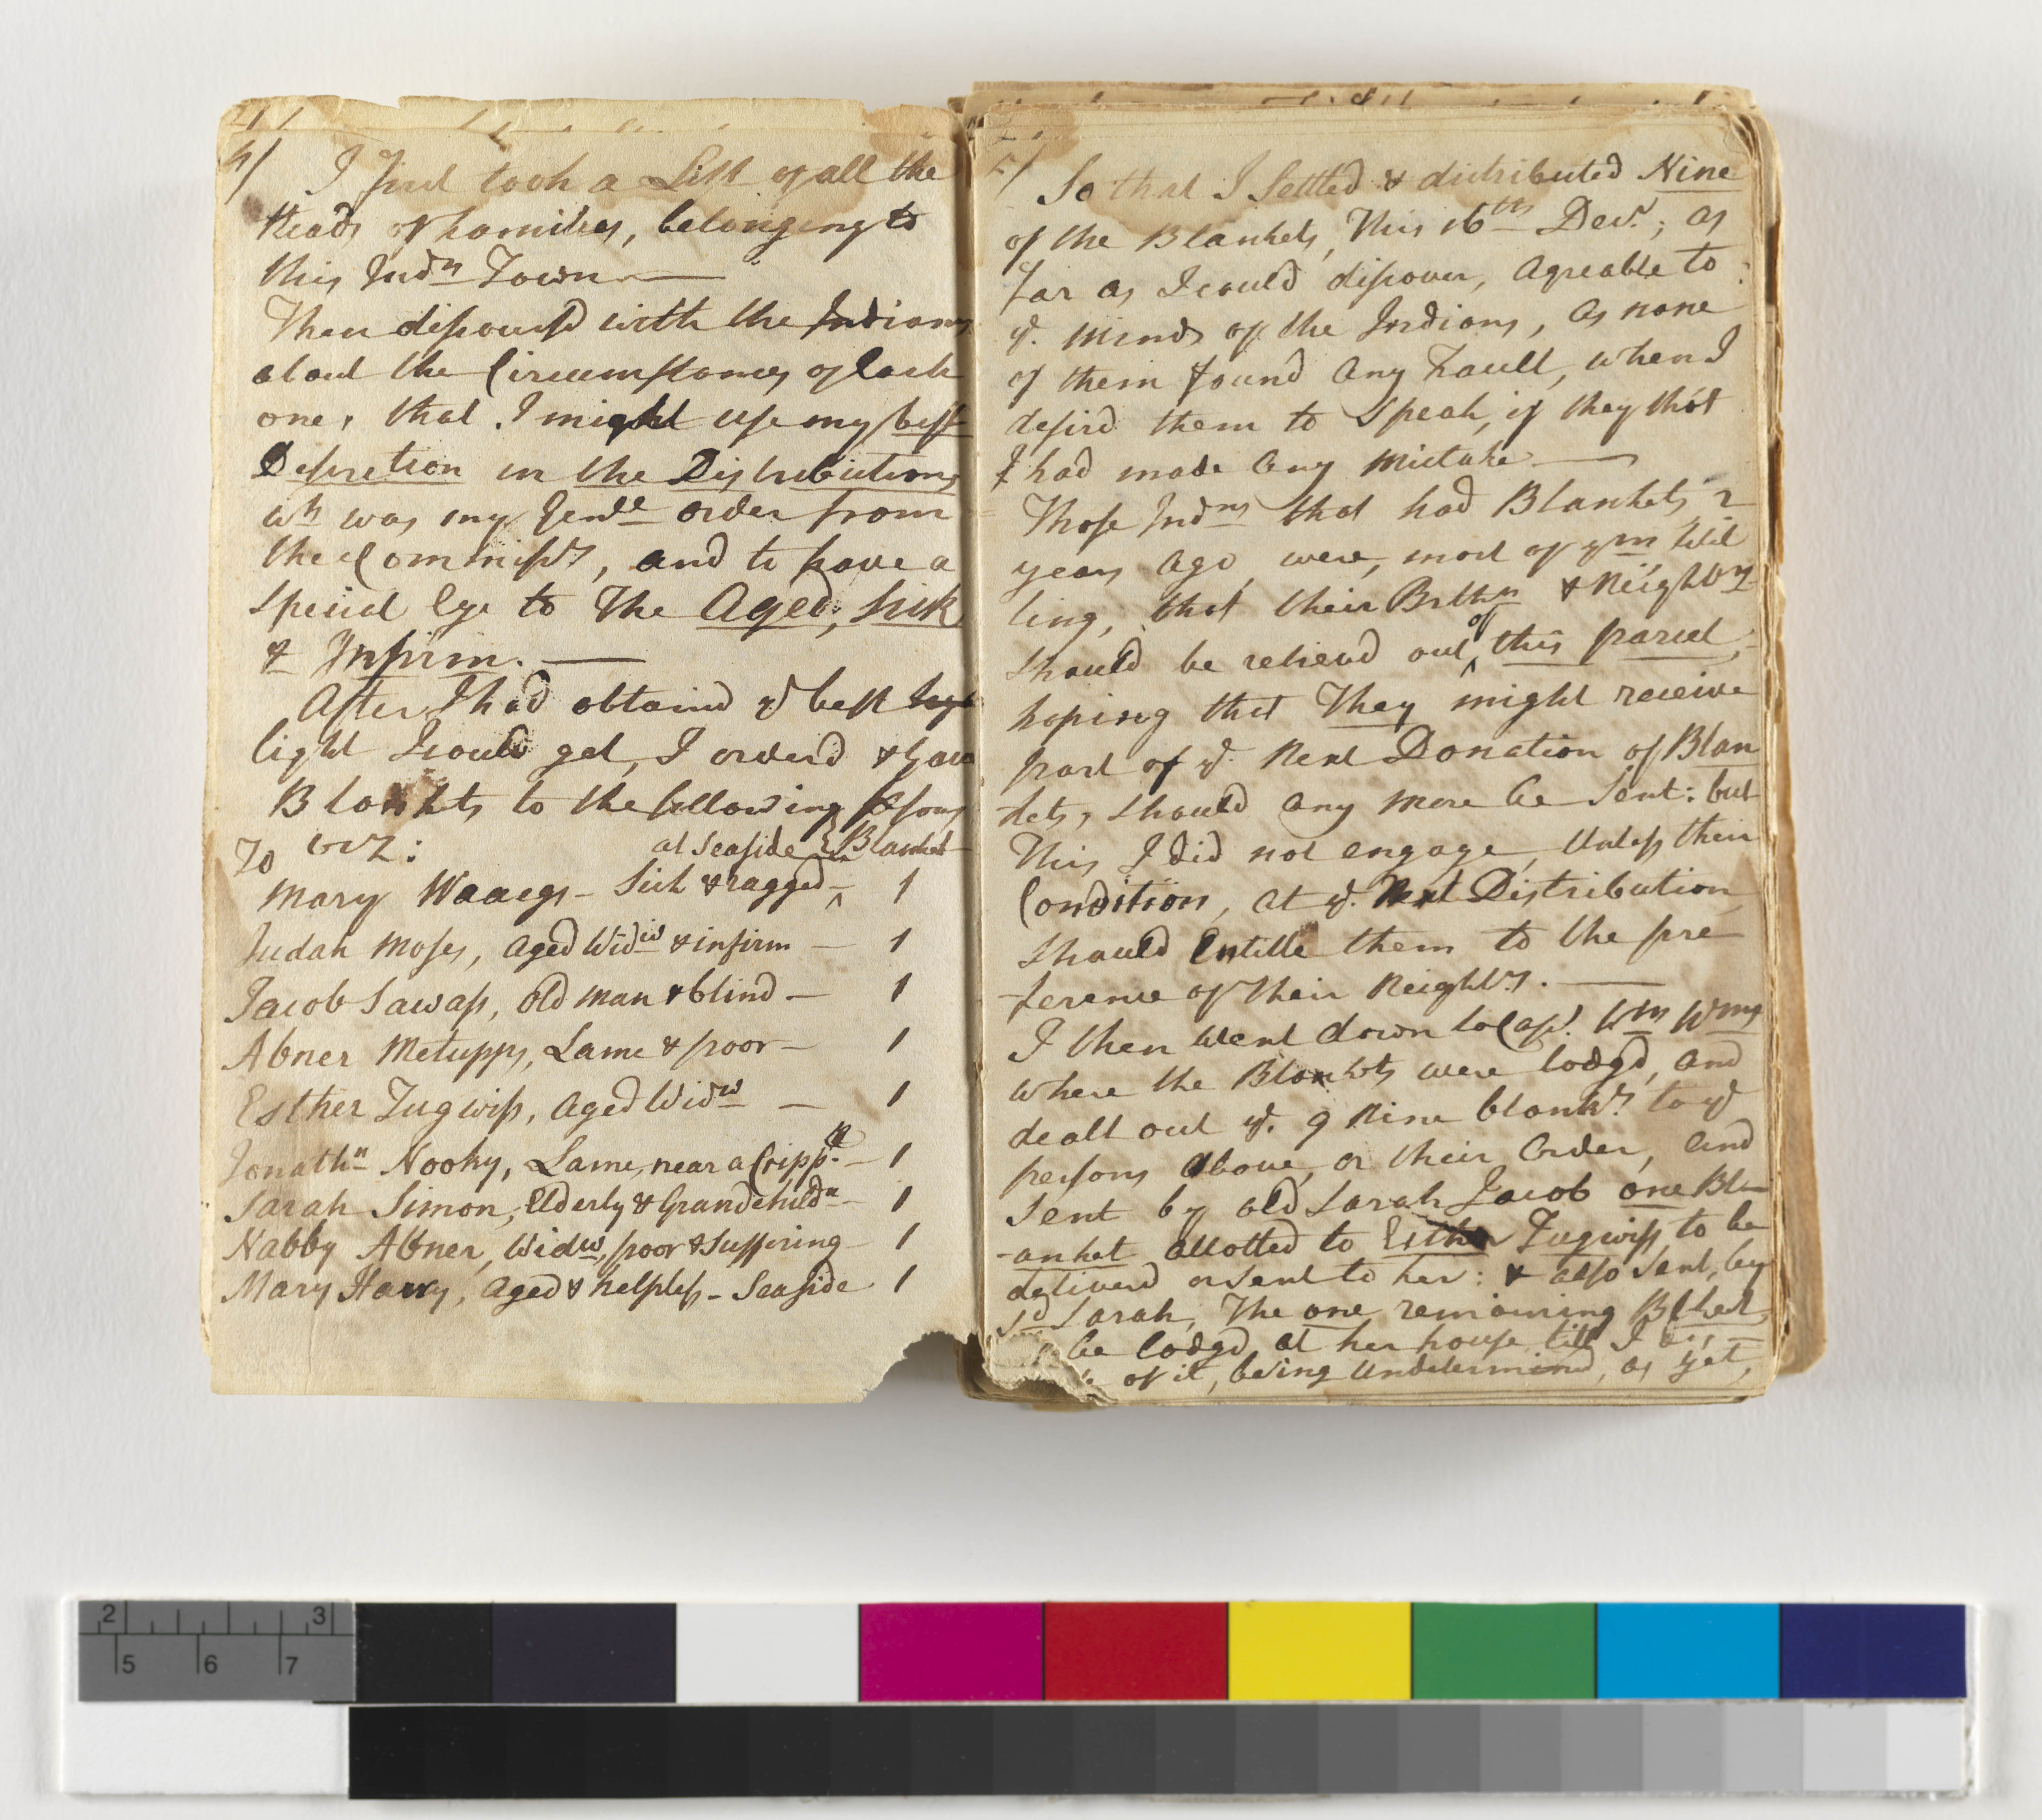 4/ I first took a List of all the
Heads of families, belonging to
this Indn Town
Then discoursd with the Indians
about the Circumstances of Each
one, that I might use my best
Discretion in the Distributions
wh was my Genll order from
the Commissrs, and to have a
Special Eye to The Aged, Sick
& Infirm.
After I had obtaind ye best
light I could get, I orderd & gave
Blankets to the following psons
To viz: at Seaside Blanket
Mary Waaegs - Sick & ragged - 1
Judah Moses, Aged Widw & infirm - 1
Jacob Sawass, old man & blind - 1
Abner Metupps, Lame & poor - 1
Esther Tugwiss, Aged Widw - 1
Jonathn Nooky, Lame, near a Cripple - 1
Sarah Simon, Elderly & Grandchildn - 1
Nabby Abner, Widw, poor & Suffering - 1
Mary Harry, Aged & helpless - Seaside 1
5/ So that I Settled & distributed Nine
of the Blankets, This 16th Decr; as
far as I could discover, Agreable to
ye. minds of the Indians, as none
of them found Any Fault, when I
desird them to Speak, if they tho't
I had made Any Mistake
Those Indns that had Blankets 2
years ago, were, most of ym, Wil
ling, that their Brethn & Neighbrs
should be relievd out of this parcel,
hoping that They might receive
part of ye. Next Donation of Blan
kets, should any more be Sent: but
This I did not engage, Unless their
Condition, at ye. Next Distribution
should Entitle them to the pre
-ference of their Neighbrs.
I then went down to Capt. Wm Wms
where the Blankets were lodgd, and
dealt out ye. 9 Nine blankts to ye
persons Above, or their Order, and
Sent by old Sarah Jacob one Bl-
-anket allotted to Esther Tugwiss to be
deliverd or sent to her: & also Sent, by
sd Sarah, The one remaining Blket,
be lodgd at her house till I
of it, being Undetermind, as yet,
2 3
5 6 7